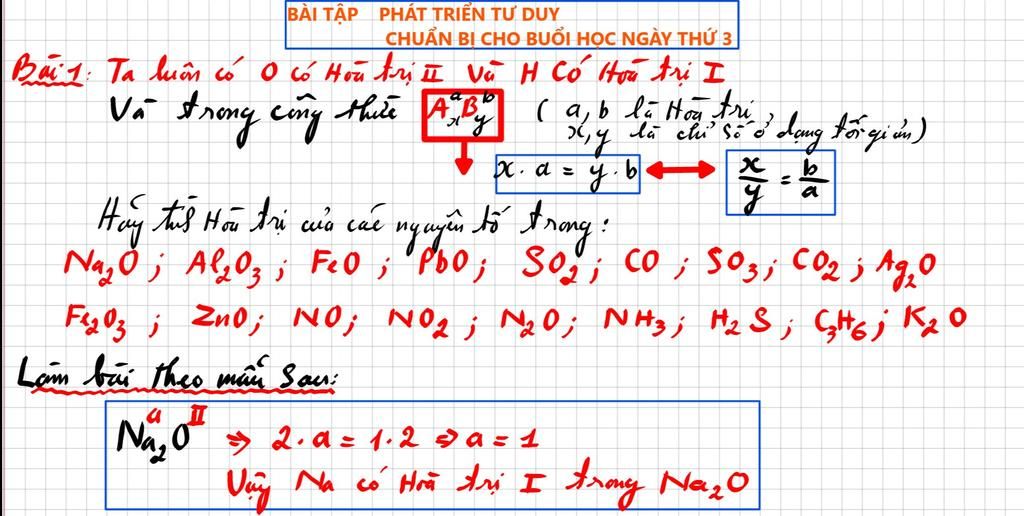 BÀI TẬP PHÁT TRIỂN TƯ DUY
CHUẨN BỊ CHO BUỔI HỌC NGÀY THỨ 3
Bài 1: Ta luôn có O có Hoá trị II và H Có Hoá trị I
Và trong công thức AₓᵃBᵧᵇ (a, b là Hoá trị
x, y là chỉ số ở dạng tối giản)
x . a = y . b ↔ x/y = b/a
Hãy tính Hoá trị của các nguyên tố trong:
Na₂O ; Al₂O₃ ; FeO ; PbO ; SO₂ ; CO ; SO₃ ; CO₂ ; Ag₂O
Fe₂O₃ ; ZnO ; NO ; NO₂ ; N₂O ; NH₃ ; H₂S ; C₃H₆ ; K₂O
Làm bài theo mẫu sau:
Naᵃ₂Oᴵᴵ ⇒ 2.a = 1.2 ⇒ a = 1
Vậy Na có Hoá trị I trong Na₂O